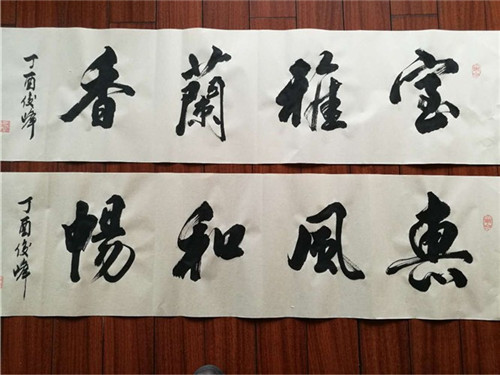 室雅蘭香
丁酉俊峰
惠風和暢
丁酉俊峰